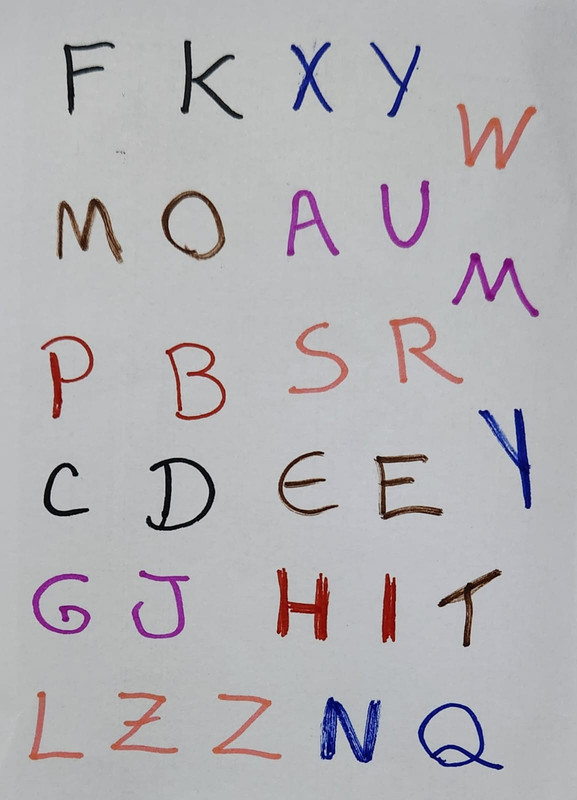 F K X Y
W
M O A U
M
P B S R
Y
C D E E
G J H I T
L Z Z N Q